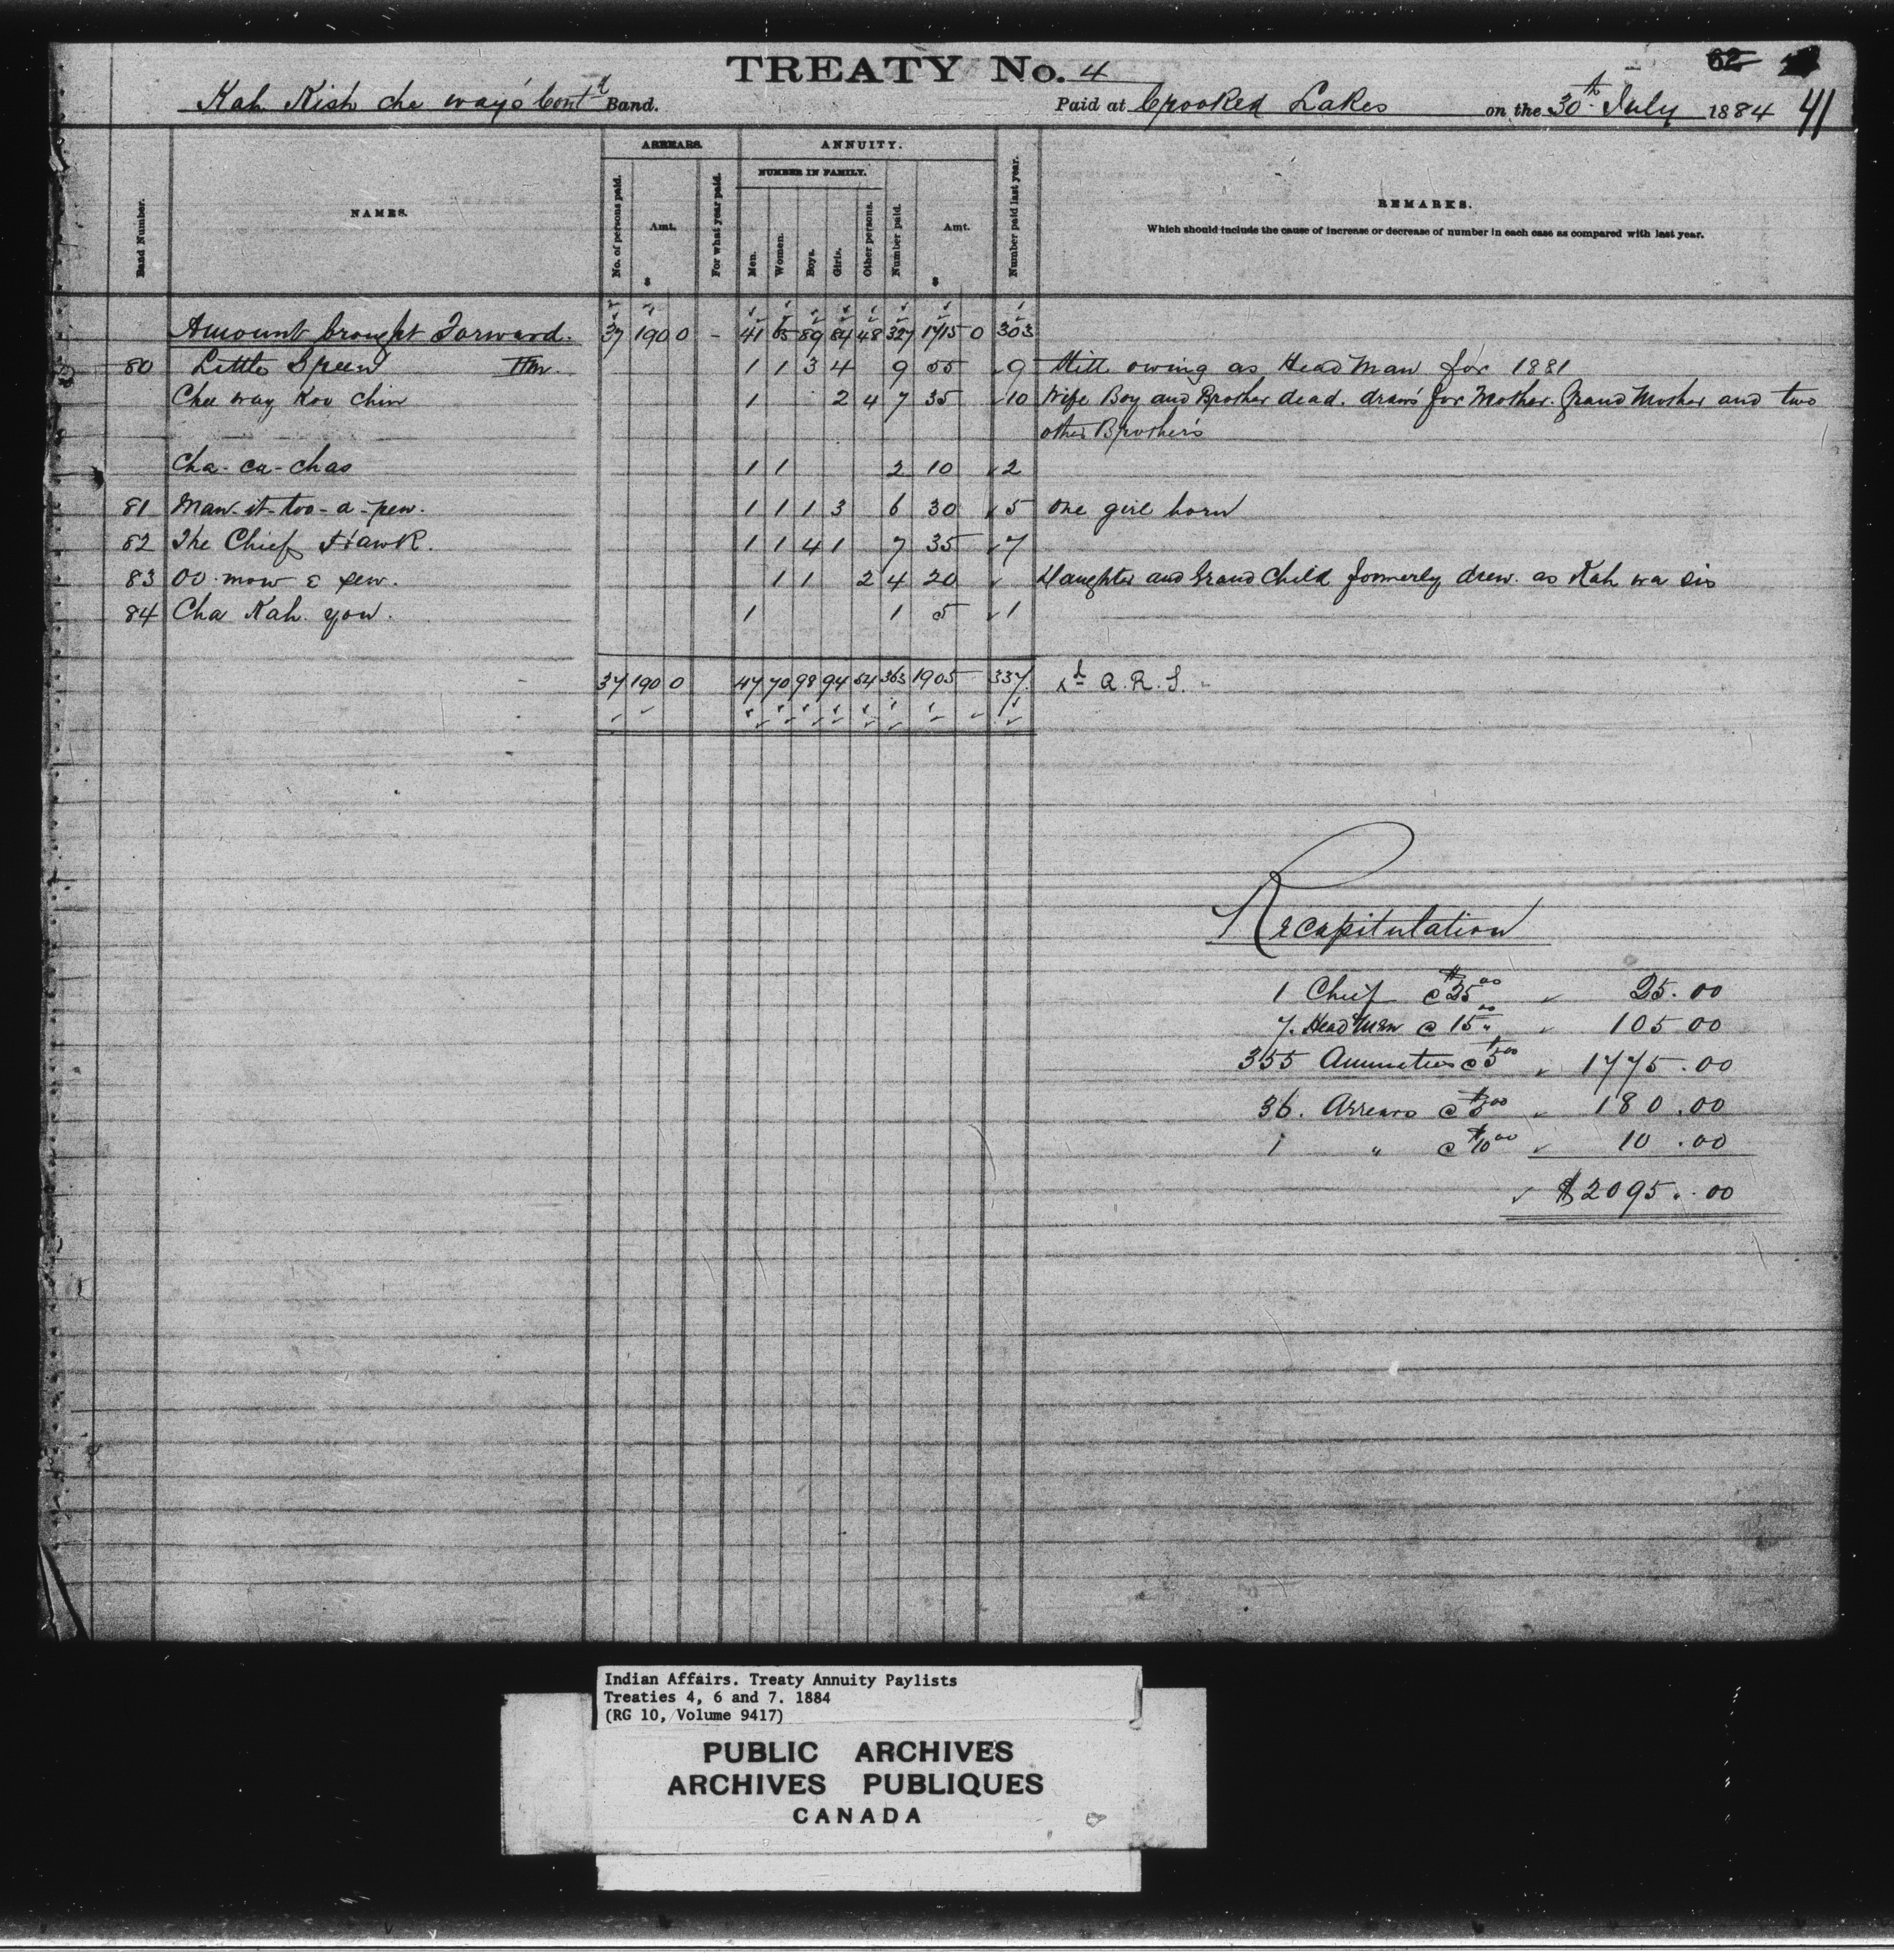 TREATY No. 4
62 41
Kah Kish che way's Cont'd Band. Paid at Crooked Lakes on the 30th July 1884
ARREARS. ANNUITY.
NUMBER IN FAMILY.
Band Number. NAMES. No. of persons paid. Amt. $ For what year paid. Men. Women. Boys. Girls. Other persons. Number paid. Amt. $ Number paid last year. REMARKS.
Which should include the cause of increase or decrease of number in each case as compared with last year.
Amount brought Forward. 37 190 0 - 41 65 89 84 48 327 1715 0 303
80 Little Speen Hm. 1 1 3 4 9 55 9 Still owing as Head Man for 1881
Chee way Koo Chin 1 2 4 7 35 10 Wife Boy and Brother dead. draws for Mother. Grand Mother and two
other Brothers
Cha-ca-chas 1 1 2 10 2
81 Man-it-too-a-pew. 1 1 1 3 6 30 5 One girl born
82 The Chief Hawk. 1 1 4 1 7 35 7
83 OO-mow E pew. 1 1 2 4 20 Daughter and Grand Child formerly drew as Kah wa sis
84 Cha Kah yow. 1 1 5 1
37 190 0 47 70 98 94 54 363 1905 337 A.R.S.
Recapitulation
1 Chief @ $25.00 25.00
7. Head Men @ 15.00 105 00
355 Annuities @ $5.00 1775.00
36. Arrears @ $5.00 180.00
1 " @ $10.00 10.00
$2095.00
Indian Affairs. Treaty Annuity Paylists
Treaties 4, 6 and 7. 1884
(RG 10, Volume 9417)
PUBLIC ARCHIVES
ARCHIVES PUBLIQUES
CANADA